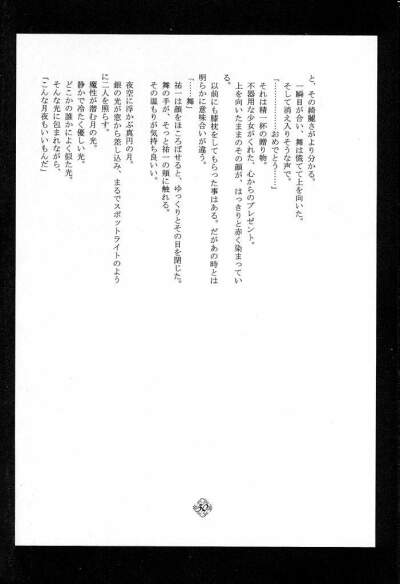 と、その綺麗さがより分かる。
一瞬目が合い、舞は慌てて上を向いた。
そして消え入りそうな声で。
「…………おめでとう……」
それは精一杯の贈り物。
不器用な少女がくれた、心からのプレゼント。
上を向いたままのその顔が、はっきりと赤く染まってい
る。
以前にも膝枕をしてもらった事はある。だがあの時とは
明らかに意味合いが違う。
「……舞」
祐一は顔をほころばせると、ゆっくりとその目を閉じた。
舞の手が、そっと祐一の頬に触れる。
その温もりが気持ち良い。
夜空に浮かぶ真円の月。
銀の光が窓から差し込み、まるでスポットライトのよう
に二人を照らす。
魔性が潜む月の光。
静かで冷たく優しい光。
どこかの誰かによく似た光。
そんな光に包まれながら、
「こんな月夜もいいもんだ」
50